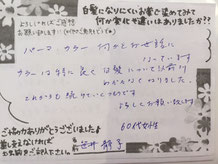 白髪になりにくいお薬で染めてみて
何か変化や違いはありましたか??
よろしければご感想
お願い致します!
パーマ、カラー 何年とお世話に
なっています
カラーは特に良くて髪について以前
からなくなりました。
これからも続けていこうと
よろしくお願い致します
60代女性
ご協力ありがとうございました
差し支えなければ
お名前をご記入下さい。
笹井 静子